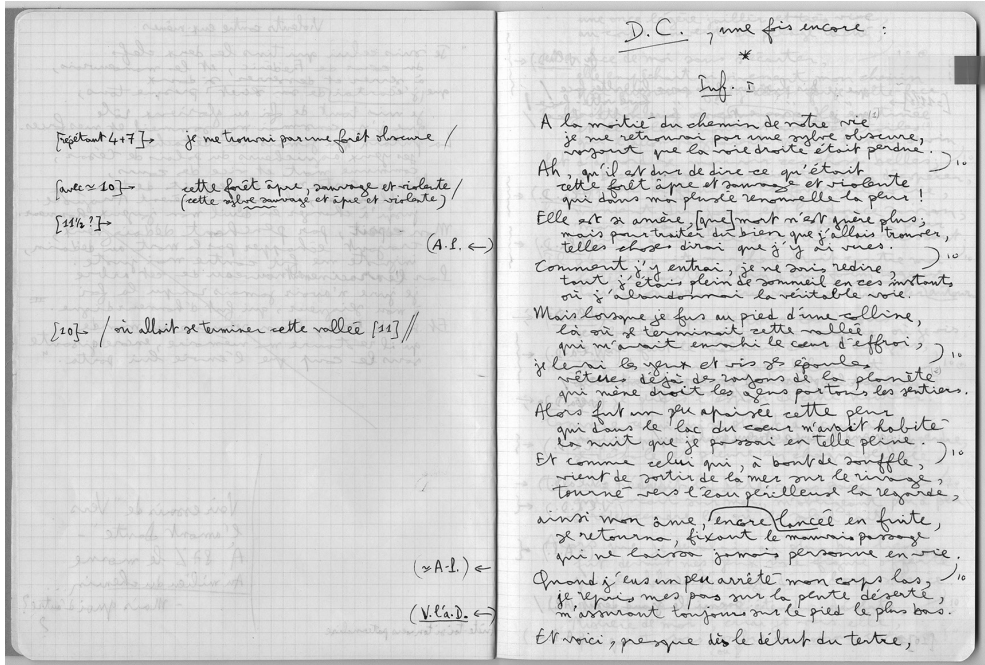 [répétant 4+7]→ je me trouvai par une forêt obscure /
[avec ≈ 10]→ cette forêt âpre, sauvage et violente /
(cette sylve sauvage et âpre et violente)
[11½ ?]→
(A.P. ←)
[10]→ / où allait se terminer cette vallée [11] //
(≈ A-P.) ←
(V. l'a. D. ←)
D. C. , une fois encore :
*
Inf. I
A la moitié du chemin de notre vie
je me retrouvai par une sylve obscure,
voyant que la voie droite était perdue.
10
Ah, qu'il est dur de dire ce qu'était
cette forêt âpre et sauvage et violente
qui dans ma pensée renouvelle la peur !
Elle est si amère, [que] mort n'est guère plus ;
mais pour traiter du bien que j'allais trouver,
telles choses dirai que j'y ai vues.
10
Comment j'y entrai, je ne sais redire,
tant j'étais plein de sommeil en ces instants
où j'abandonnai la véritable voie.
Mais lorsque je fus au pied d'une colline,
là où se terminait cette vallée
qui m'avait envahi le cœur d'effroi,
10
je levai les yeux et vis ses épaules
vêtues déjà des rayons de la planète
qui mène droit les gens par tous les sentiers.
Alors fut un peu apaisée cette peur
qui dans le lac du cœur m'avait habité
la nuit que je passai en telle peine.
10
Et comme celui qui, à bout de souffle,
vient de sortir de la mer sur le rivage,
tourné vers l'eau périlleuse la regarde,
ainsi mon âme, encore lancée en fuite,
se retourna, fixant le mauvais passage
qui ne laissa jamais personne en vie.
Quand j'eus un peu arrêté mon corps las,
10
je repris mes pas sur la pente déserte,
m'assurant toujours sur le pied le plus bas.
Et voici, presque dès le début du tertre,